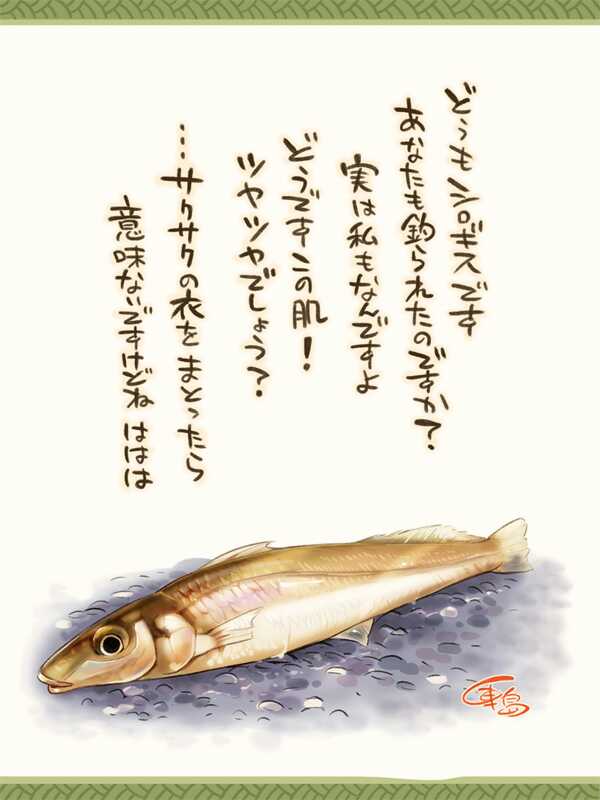 どぅもシロギスです
あなたも釣られたのですか?
実は私もなんですよ
どうですこの肌!
ツヤツヤでしょう?
…サクサクの衣をまとったら
意味ないですけどね ははは